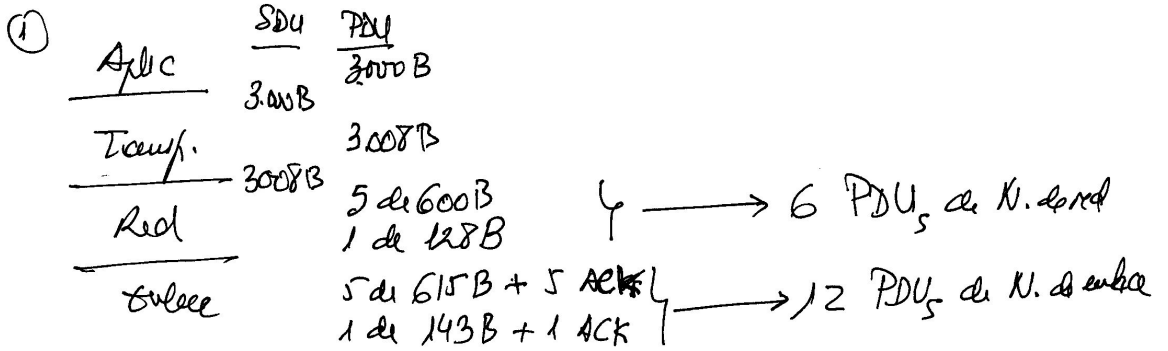 ①
SDU PDU
Aplic 3.000B
3.000B
Transp. 3.008B
3008B
Red 5 de 600B
1 de 128B → 6 PDUs de N. de red
Enlace 5 de 615B + 5 ACK
1 de 143B + 1 ACK → 12 PDUs de N. de enlace